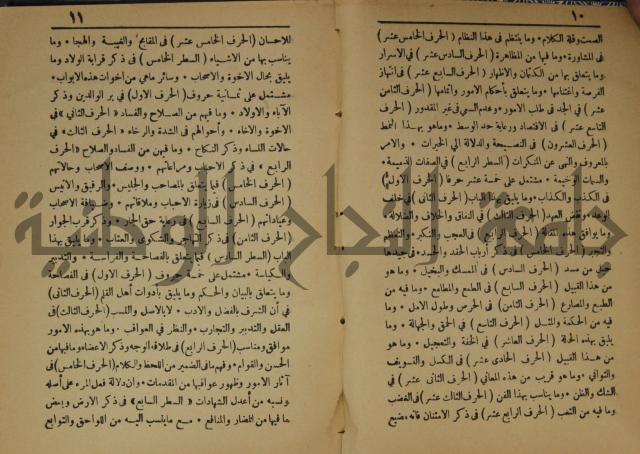 ١٠
الصمت وقلة الكلام * وما ينتظم فى هذا النظام ( الحرف الخامس عشر )
فى المشاورة * وما فيها من المظاهرة ( الحرف السادس عشر ) فى الاسرار
وما يتعلق بها من الكتمان والاظهار ( الحرف السابع عشر ) فى انتهاز
الفرصة واغتنامها * وما يتعلق بأحكام الامور واتمامها ( الحرف الثامن
عشر ) فى الجد فى طلب الامور * وعدم السعى فى غير المقدور ( الحرف
التاسع عشر ) فى الاقتصاد ورعاية حد الوسط * وما هو بهذا النمط
( الحرف العشرون ) فى النصيحة والدلالة الى الخيرات * والامر
بالمعروف والنهى عن المنكرات ( السطر الرابع ) فى الصفات الذميمة *
والسمات الوخيمة * مشتمل على خمسة عشر حرفا ( الحرف الاول )
فى الكذب والكذاب * وما يليق بهذا الباب ( الحرف الثانى ) فى خلف
الوعد * ونقض العهد ( الحرف الثالث ) فى النفاق والخلاف والضلالة *
وما يوافق هذه المقالة ( الحرف الرابع ) فى العجب والتكبر *
والتجبر ( الحرف الخامس ) فى ذكر أرباب الحقد والحسد * فى جيدها
حبل من مسد ( الحرف السادس ) فى المسك والبخيل * وما هو
من هذا القبيل ( الحرف السابع ) فى الطمع والمطامع * وما فيه من
الطبع والمصارع ( الحرف الثامن ) فى الحرص وطول الامل * وما
فيه من الحكمة والمثل ( الحرف التاسع ) فى الحمق والجهالة * وما
يليق بهذه الحالة ( الحرف العاشر ) فى الخفة والتعجيل * وما هو
من هذا القبيل ( الحرف الحادى عشر ) فى الكسل والتسويف
والتوانى * وما هو قريب من هذه المعانى ( الحرف الثانى عشر ) فى
الشك والظن * وما يناسب بهذا الفن ( الحرف الثالث عشر ) فى الغضب
وما فيه من التعب ( الحرف الرابع عشر ) فى ذكر الامتنان فانه مضيع
١١
للاحسان ( الحرف الخامس عشر ) فى المقابح والغيبة والهجا * وما
يناسب بها من الاشياء ( السطر الخامس ) فى ذكر قرابة الولاد وما
يليق بحال الاخوة والاصحاب * وسائر ماهى من اخوات هذه الابواب *
مشتمل على ثمانية حروف ( الحرف الاول ) فى بر الوالدين وذكر
الآباء والاولاد * وما فيهم من الصلاح والفساد ( الحرف الثانى ) فى
الاخوة والاخاء * وأحوالهم فى الشدة والرخاء ( الحرف الثالث ) فى
حالات النساء وذكر النكاح * وما فيهن من الفساد والصلاح ( الحرف
الرابع ) فى ذكر الاحباب ومراعاتهم * ووصف الاصحاب وحالاتهم
( الحرف الخامس ) فيما يتعلق بالمصاحب والجليس * والرفيق والانيس
( الحرف السادس ) فى زيارة الاحباب وملاقاتهم * وضيافة الاصحاب
وعياداتهم ( الحرف السابع ) فى رعاية حق الجار * وذكر قرب الجوار
( الحرف الثامن ) فى ذكر التهاجر والشكوى والعتاب * وما يليق بهذا
الباب ( السطر السادس ) فيما يتعلق بالفصاحة والفراسة * والتدبير
والكياسة * مشتمل على خمسة حروف ( الحرف الاول ) فى الفصاحة
وما يتعلق بالبيان والحكم وما يليق بأدوات أهل القلم ( الحرف الثانى )
فى أن الشرف بالفضل والادب * لا بالاصل والنسب ( الحرف الثالث ) فى
العقل والتدبير والتجارب * والنظر فى العواقب * وما هو بهذه الامور
موافق ومناسب ( الحرف الرابع ) فى طلاقة الوجه وذكر الاعضاء * وما فيها من
الحسن والقوام * وفهم ما فى الضمير من اللحظ والكلام ( الحرف الخامس ) فى
آثار الامور وظهور عواقبها من المقدمات * وان دلالة فعل المرء على أصله
ونسبه من أعدل الشهادات ( السطر السابع ) فى ذكر الارض وبعض
ما فيها من المضار والمنافع * مع ما يناسب اليه من اللواحق والتوابع
جامعة النجاح الوطنية